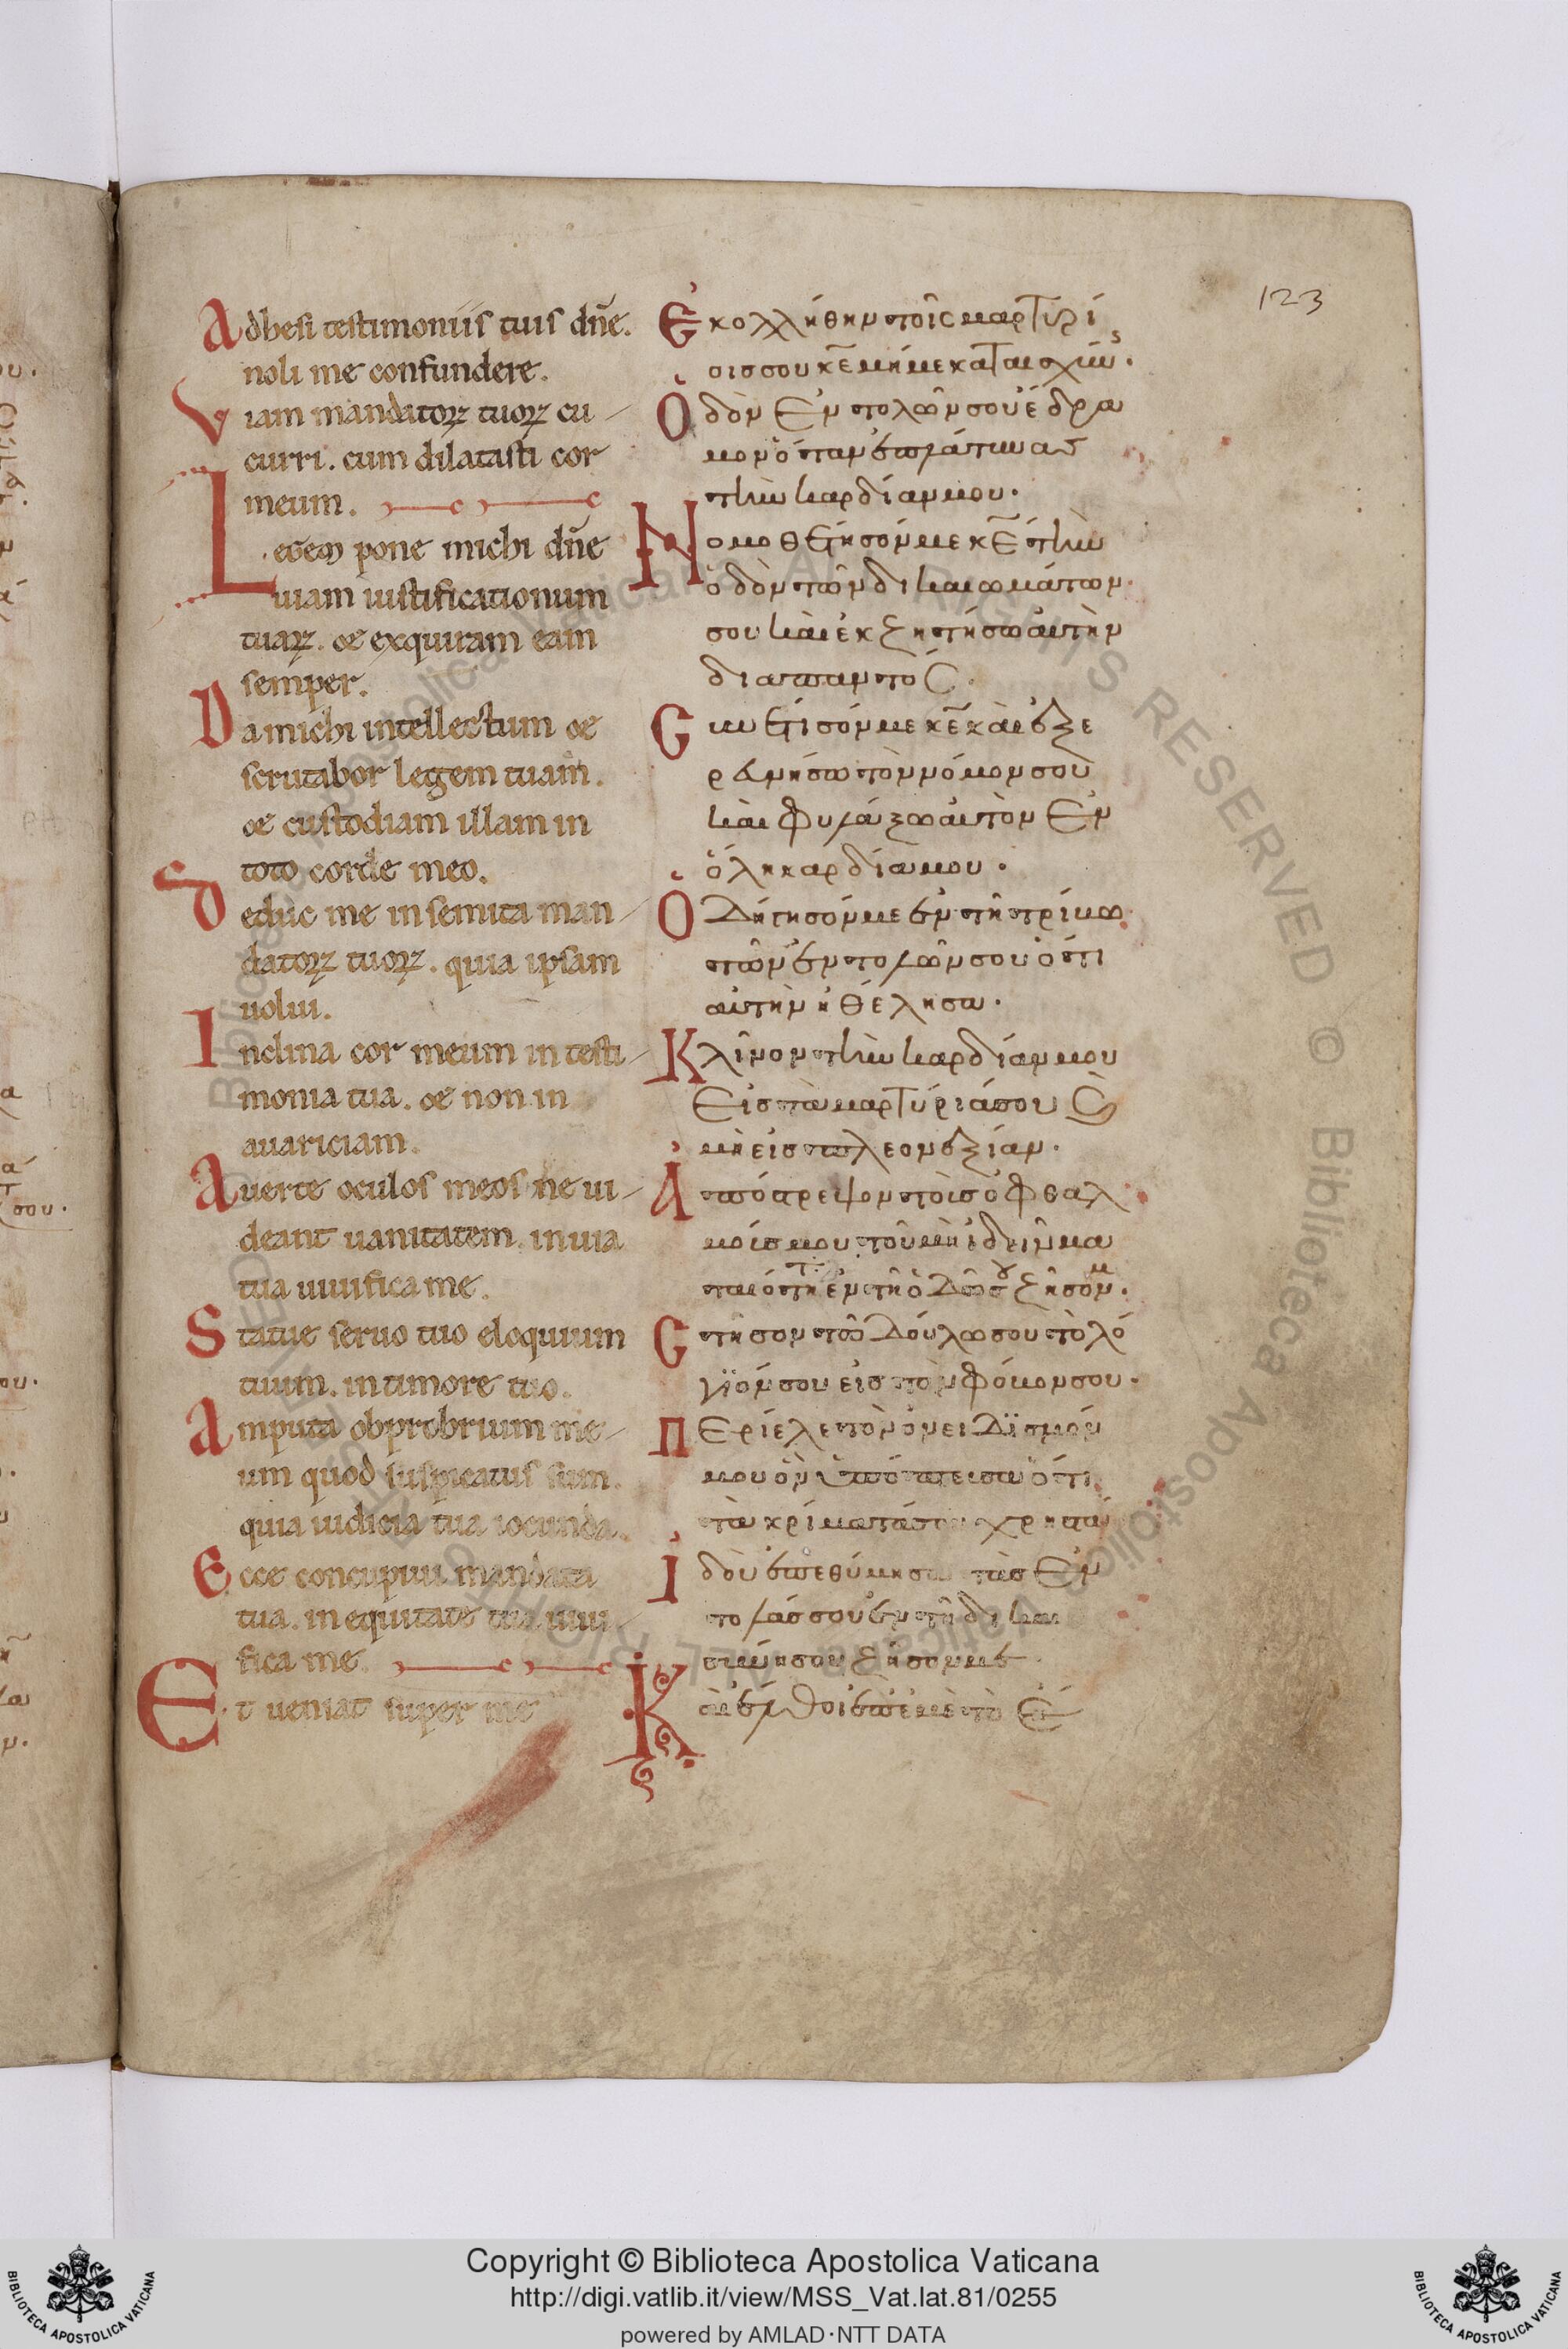 123
Adhesi testimoniis tuis dn̄e.
noli me confundere.
Viam mandatoꝝ tuoꝝ cu
curri. cum dilatasti cor
meum.
Legem pone michi dn̄e
uiam iustificationum
tuaꝝ. & exquiram eam
semper.
Da michi intellectum &
scrutabor legem tuam.
& custodiam illam in
toto corde meo.
Deduc me in semita man
datoꝝ tuoꝝ. quia ipsam
uolui.
Inclina cor meum in testi
monia tua. & non in
auariciam.
Auerte oculos meos ne ui
deant uanitatem. in uia
tua uiuifica me.
Statue seruo tuo eloquium
tuum. in timore tuo.
Amputa obprobrium me
um quod suspicatus sum.
quia iudicia tua iocunda.
Ecce concupiui mandata
tua. in equitate tua uiui
fica me.
Et ueniat super me
Ἐκολλήθην τοῖς μαρτυρί
οισ σου κ̄ε μήμε καταισχύνς.
Ὁδὸν ἐντολῶν σου ἔδρα
μον ὅταν ἐπλάτυνασ
τὴν καρδίαν μου.
Νομοθέτησόν με κ̄ε τὴν
ὁδὸν τῶν δικαιωμάτων
σου καὶ ἐκζητήσω αὐτὴν
διαπαντόσ.
Συνέτισόν με κ̄ε κὰι ἐξε
ρευνήσω τὸν νόμον σοὺ
καὶ φυλάξω αὐτὸν ἐν
ὅλη καρδία μου.
Ὁδήγησόν με ἐν τῆ τρίβω
τῶν ἐντολῶν σου ὅτι
αὐτὴν ἠθέλησα.
Κλῖνον τὴν καρδίαν μου
Εἰσ τὰ μαρτύριά σου ϗ
μὴ εἰσ πλεονεξίαν.
Ἀπόστρεψον τοὺσ ὀφθαλ
μούσ μου τοῦ μὴ ἰδεῖν μα
ταιότητα ἐν τῆ ὁδῶ σου ζῆσόν μ.
Στῆσον τῶ δούλω σου τὸ λό
γϊόν σου εἰσ τὸν φόβον σου.
Περίελε τὸν ὀνειδϊσμόν
μου ὃν ὑπόπτευσα ὅτι
τὰ κρίματά σου χρηστά
Ἰδοὺ ἐπεθύμησα τὰσ ἐν
τολάσ σου ἐν τῆ δικαι
οσύνη σου ζῆσόν με.
Κὰι ἔλθοι ἐπ' ἐμὲ τὸ ἔ
Copyright © Biblioteca Apostolica Vaticana
http://digi.vatlib.it/view/MSS_Vat.lat.81/0255
powered by AMLAD·NTT DATA